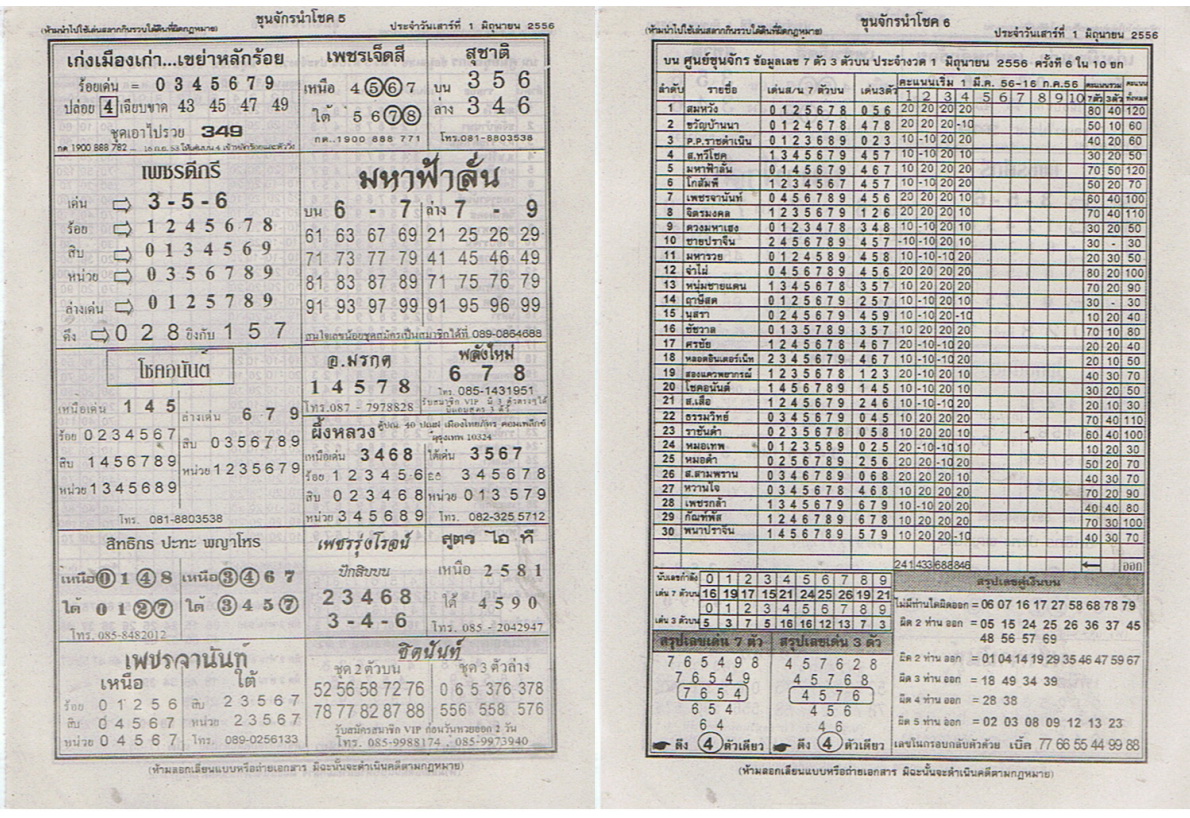 ขุนจักรนำโชค 5
(ห้ามนำไปใช้เล่นสลากกินรวบได้คืนที่ผิดกฎหมาย) ประจำวันเสาร์ที่ 1 มิถุนายน 2556
เก่งเมืองเก่า...เขย่าหลักร้อย
ร้อยเด่น = 0 3 4 5 6 7 9
ปล่อย 4 เฉียบขาด 43 45 47 49
ชุดเอาไปรวย 349
กด 1900 888 782
เพชรเจ็ดสี
เหนือ 4 5 6 7
ใต้ 5 6 7 8
กด..1900 888 771
สุชาติ
บน 3 5 6
ล่าง 3 4 6
โทร.081-8803538
เพชรดีกรี
เด่น 3 - 5 - 6
ร้อย 1 2 4 5 6 7 8
สิบ 0 1 3 4 5 6 9
หน่วย 0 3 5 6 7 8 9
ล่างเด่น 0 1 2 5 7 8 9
ดึง 0 2 8 ยิงกับ 1 5 7
มหาฟ้าลั่น
บน 6 - 7 ล่าง 7 - 9
61 63 67 69 21 25 26 29
71 73 77 79 41 45 46 49
81 83 87 89 71 75 76 79
91 93 97 99 91 95 96 99
สนใจเลขน้อยชุดสมัครเป็นสมาชิกได้ที่ 089-0864688
โชคอนันต์
เหนือเด่น 1 4 5 ล่างเด่น 6 7 9
ร้อย 0 2 3 4 5 6 7 สิบ 0 3 5 6 7 8 9
สิบ 1 4 5 6 7 8 9 หน่วย 1 2 3 5 6 7 9
หน่วย 1 3 4 5 6 8 9
โทร. 081-8803538
อ.มรกต
1 4 5 7 8
โทร.087 - 7978828
พลังใหม่
6 7 8
โทร. 085-1431951
ผึ้งหลวง
กรุงเทพ 10324
เหนือเด่น 3 4 6 8 ใต้เด่น 3 5 6 7
ร้อย 1 2 3 4 5 6 3 4 5 6 7 8
สิบ 0 2 3 4 6 8 หน่วย 0 1 3 5 7 9
หน่วย 3 4 5 6 8 9 โทร. 082-325 5712
สิทธิกร ปะทะ พญาโหร
เหนือ 0 1 4 8 เหนือ 3 4 6 7
ใต้ 0 1 2 7 ใต้ 3 4 5 7
โทร. 085-8482012
เพชรรุ่งโรจน์
ปักสิบบน
2 3 4 6 8
3 - 4 - 6
สูตร ไอ ที
เหนือ 2 5 8 1
ใต้ 4 5 9 0
โทร. 085 - 2042947
เพชรจานันท์
เหนือ ใต้
ร้อย 0 1 2 5 6 สิบ 2 3 5 6 7
สิบ 0 4 5 6 7 หน่วย 2 3 5 6 7
หน่วย 0 4 5 6 7 โทร. 089-0256133
ฮิตนันท์
ชุด 2 ตัวบน ชุด 3 ตัวล่าง
52 56 58 72 76 0 6 5 376 378
78 77 82 87 88 556 558 576
รับสมัครสมาชิก VIP ก่อนวันหวยออก 2 วัน
โทร. 085-9988174 . 085-9973940
(ห้ามลอกเลียนแบบหรือถ่ายเอกสาร มิฉะนั้นจะดำเนินคดีตามกฎหมาย)
ขุนจักรนำโชค 6
(ห้ามนำไปใช้เล่นสลากกินรวบได้คืนที่ผิดกฎหมาย) ประจำวันเสาร์ที่ 1 มิถุนายน 2556
บน ศูนย์ขุนจักร ข้อมูลเลข 7 ตัว 3 ตัวบน ประจำงวด 1 มิถุนายน 2556 ครั้งที่ 6 ใน 10 ยก
ลำดับ รายชื่อ เด่นส/น 7 ตัวบน เด่น3ตัว คะแนนเริ่ม 1 มี.ค. 56-16 ก.ค.56 คะแนนรวม คะแนน
1 2 3 4 5 6 7 8 9 10 7ตัว 3ตัว ทั้งหมด
1 สมหวัง 0 1 2 5 6 7 8 0 5 6 20 20 20 20 80 40 120
2 ขวัญบ้านนา 0 1 2 4 6 7 8 4 7 8 20 20 20 -10 50 10 60
3 P.P.ราชดำเนิน 0 1 2 3 6 8 9 0 2 3 10 -10 20 20 40 20 60
4 ส.ทวีโชค 1 3 4 5 6 7 9 4 5 7 10 20 20 10 30 20 50
5 มหาฟ้าลั่น 0 1 4 5 6 7 9 4 6 7 10 20 20 20 70 50 120
6 โกสัมพี 1 2 3 4 5 6 7 4 5 7 10 -10 20 20 50 20 70
7 เพชรจานันท์ 0 4 5 6 7 8 9 4 5 6 20 20 20 10 60 40 100
8 จิตรมงคล 1 2 3 5 6 7 9 1 2 6 20 20 20 10 70 40 110
9 ดวงมหาเฮง 0 1 2 3 4 7 8 3 4 8 10 -10 20 10 30 20 50
10 ชายปราจีน 2 4 5 6 7 8 9 4 5 7 -10 -10 20 10 30 - 30
11 มหารวย 0 1 2 4 5 8 9 4 5 8 10 -10 -10 20 20 30 50
12 จำไม่ 0 4 5 6 7 8 9 4 5 6 20 20 20 20 80 20 100
13 หนุ่มชายแดน 1 3 4 5 6 7 8 3 5 7 10 20 20 20 70 20 90
14 ฤาษีสด 0 1 2 5 6 7 9 2 5 7 10 -10 20 10 30 - 30
15 นุสรา 0 2 4 5 6 7 9 4 5 9 10 -10 20 -10 10 20 40
16 ชัชวาล 0 1 3 5 7 8 9 3 5 7 10 20 20 20 70 10 80
17 ศรชัย 1 3 4 5 6 7 8 4 6 7 20 -10 -10 20 20 20 40
18 หลอดอินเตอร์เน็ท 2 3 4 5 6 7 9 4 6 7 10 -10 -10 20 20 10 50
19 สองแควพยากรณ์ 1 2 3 5 6 7 8 1 2 3 20 -10 20 10 40 30 70
20 โชคอนันต์ 1 4 5 6 7 8 9 1 4 5 10 -10 20 10 30 20 50
21 ส.เสือ 1 2 4 5 6 7 9 2 4 6 10 -10 -10 20 20 10 30
22 ธรรมวิทย์ 0 3 4 5 6 7 9 0 4 5 10 20 20 20 70 40 110
23 ราชันดำ 0 2 3 5 6 7 8 0 5 8 10 20 20 10 60 40 100
24 หมอเทพ 0 1 2 3 5 8 9 0 2 5 20 -10 -10 10 10 20 30
25 หมอดำ 0 2 5 6 7 8 9 2 5 6 20 20 -10 20 50 20 70
26 ส.สามพราน 0 3 4 6 7 8 9 0 6 8 20 20 20 10 40 30 70
27 หวานใจ 0 3 4 5 6 7 8 4 6 8 10 20 20 20 70 20 90
28 เพชรกล้า 1 3 4 5 6 7 9 6 7 9 10 -10 20 20 40 40 80
29 กัณฑ์พัส 1 2 4 6 7 8 9 6 7 8 10 20 20 20 70 30 100
30 พนาปราจีน 1 4 5 6 7 8 9 5 7 9 10 20 20 -10 40 30 70
241 433 688 846 ออก
นับเลขกำลัง 0 1 2 3 4 5 6 7 8 9
เด่น 7 ตัวบน 16 19 17 15 21 24 25 26 19 21
0 1 2 3 4 5 6 7 8 9
เด่น 3 ตัวบน 5 3 7 5 16 16 12 13 7 3
สรุปเลขเด่น 7 ตัว สรุปเลขเด่น 3 ตัว
7 6 5 4 9 8 4 5 7 6 2 8
7 6 5 4 9 4 5 7 6 8
7 6 5 4 4 5 7 6
6 5 4 4 5 6
6 4 4 6
ดึง 4 ตัวเดียว ดึง 4 ตัวเดียว
สรุปเลขคู่เงินบน
ไม่มีท่านใดผิดออก = 06 07 16 17 27 58 68 78 79
ผิด 2 ท่าน ออก = 05 15 24 25 26 36 37 45
48 56 57 69
ผิด 2 ท่าน ออก = 01 04 14 19 29 35 46 47 59 67
ผิด 3 ท่าน ออก = 18 49 34 39
ผิด 4 ท่าน ออก = 28 38
ผิด 5 ท่าน ออก = 02 03 08 09 12 13 23
เลขในกรอบกลับตัวด้วย เบิ้ล 77 66 55 44 99 88
(ห้ามลอกเลียนแบบหรือถ่ายเอกสาร มิฉะนั้นจะดำเนินคดีตามกฎหมาย)